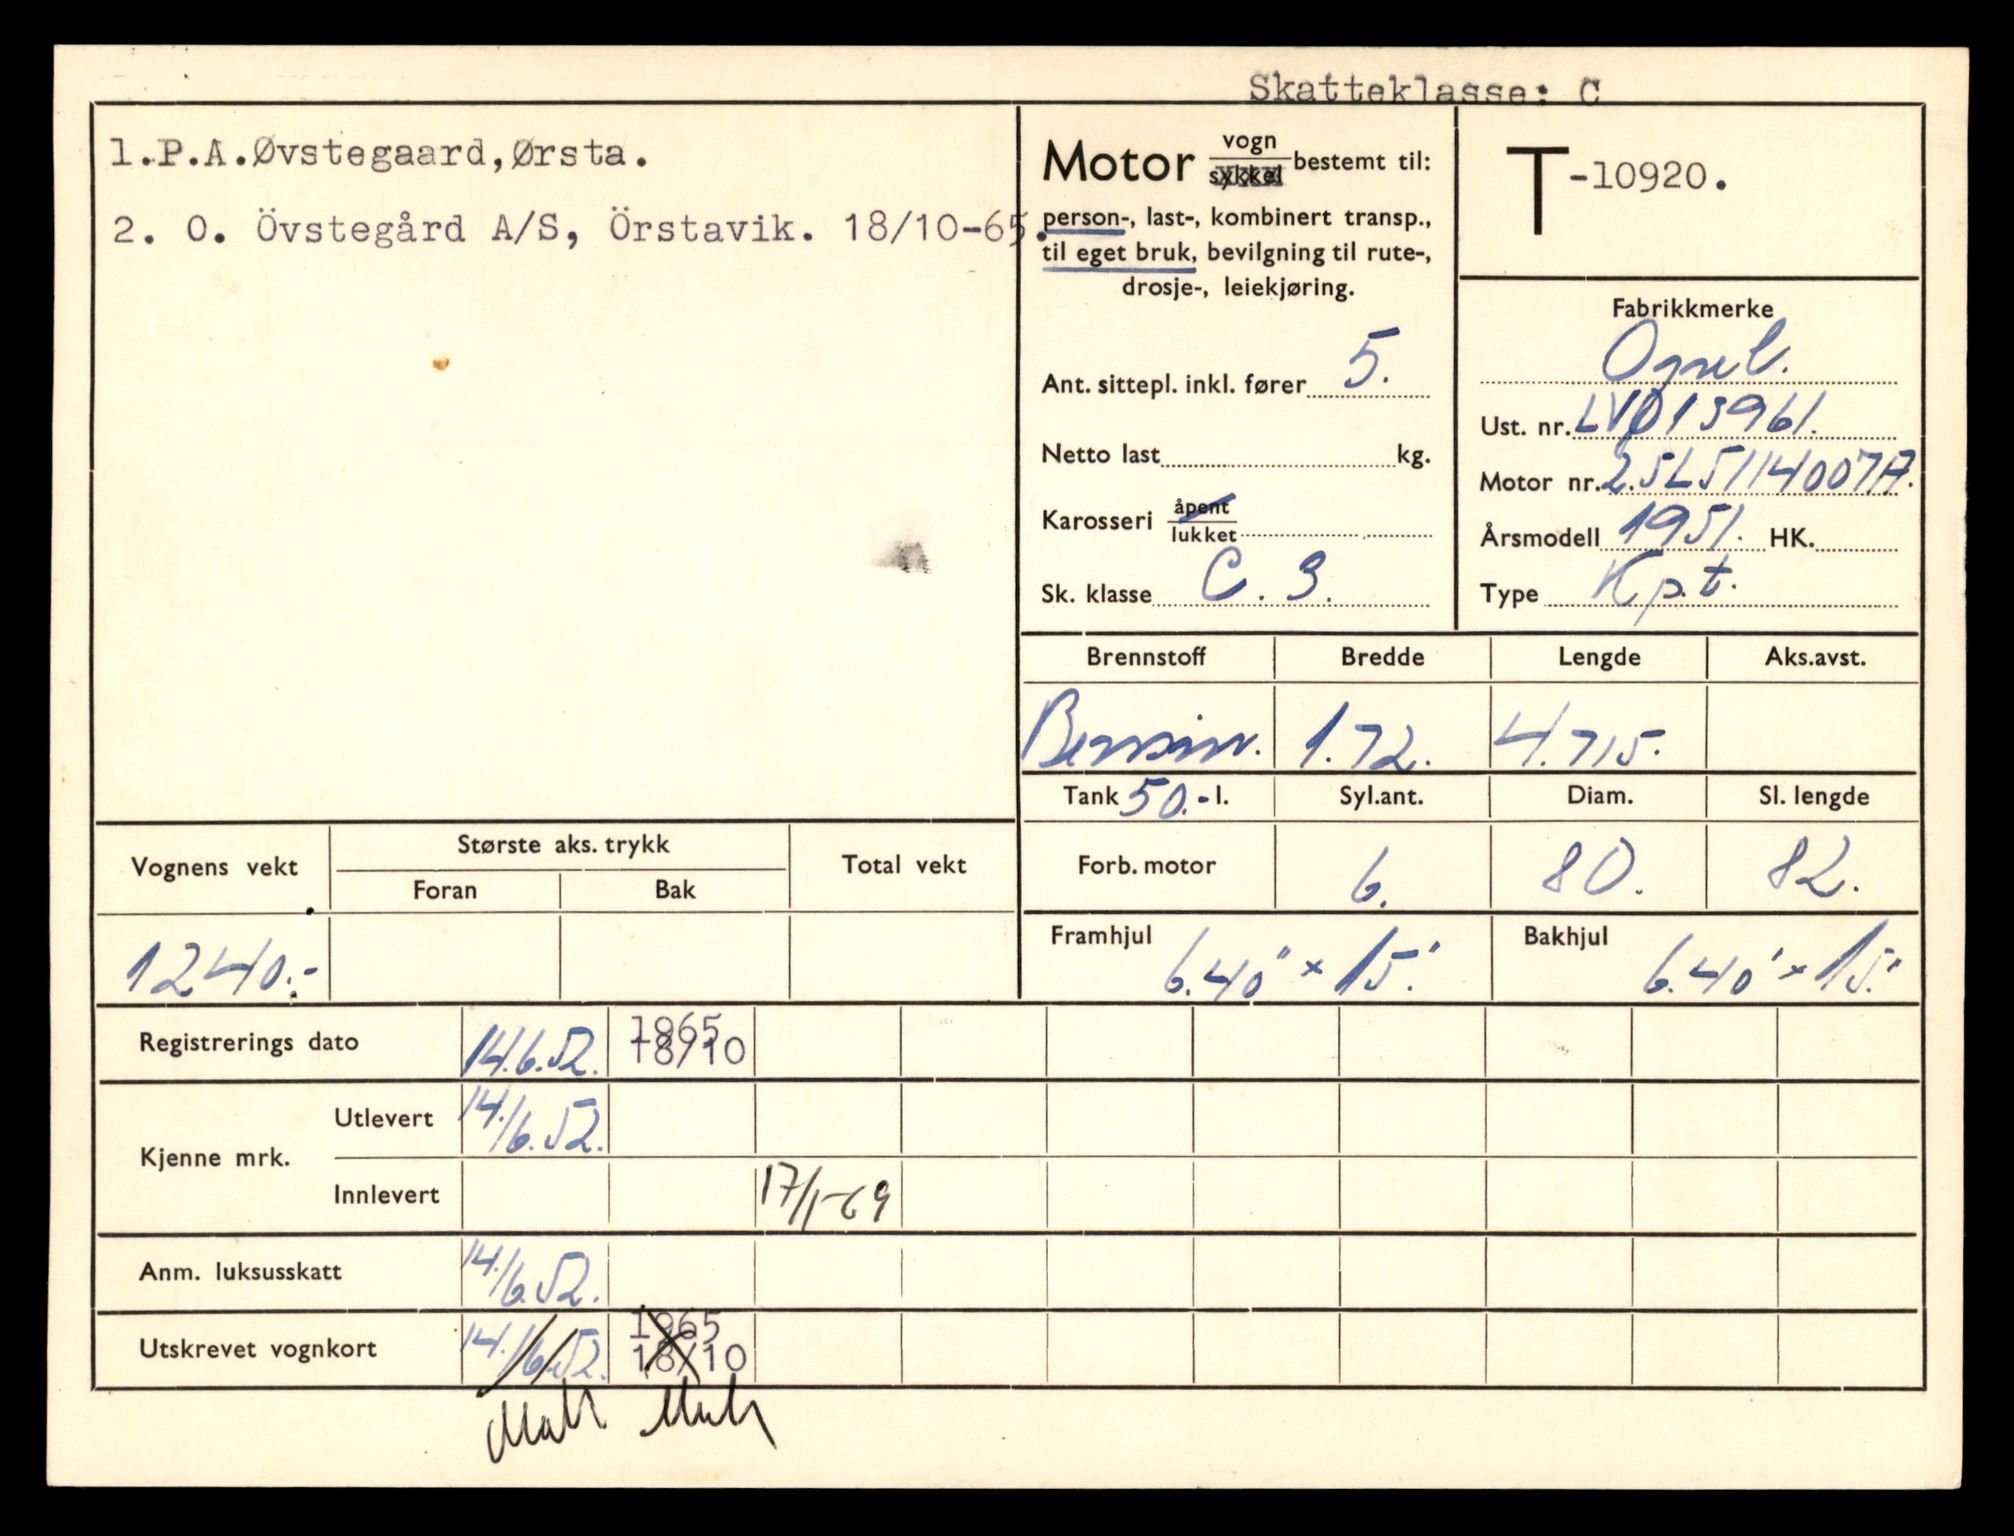 Skatteklasse: C
1.P.A.Øvstegaard,Ørsta.
2. O. Övstegård A/S, Örstavik. 18/10-65.
Motor vogn bestemt til:
sykkel
person-, last-, kombinert transp.,
til eget bruk, bevilgning til rute-,
drosje-, leiekjøring.
Ant. sittepl. inkl. fører 5.
Netto last kg.
Karosseri åpent
lukket
Sk. klasse C. 3.
T-10920.
Fabrikkmerke
Opel.
Ust. nr. LVØ13961.
Motor nr. 2.5L5114007A.
Årsmodell 1951. HK.
Type Kpt.
Brennstoff Bredde Lengde Aks.avst.
Bensin. 1.72. 4.715.
Tank 50.- l. Syl.ant. Diam. Sl. lengde
Forb. motor 6. 80. 82.
Framhjul 6.40" x 15." Bakhjul 6.40" x 15."
Vognens vekt Største aks. trykk Total vekt
Foran Bak
1240.-
Registrerings dato 14.6.52. 1965 18/10
Kjenne mrk. Utlevert 14./6.52.
Innlevert 17/1-69
Anm. luksusskatt 14./6.52.
Utskrevet vognkort 14./6.52. 1965 18/10
Mak Mak